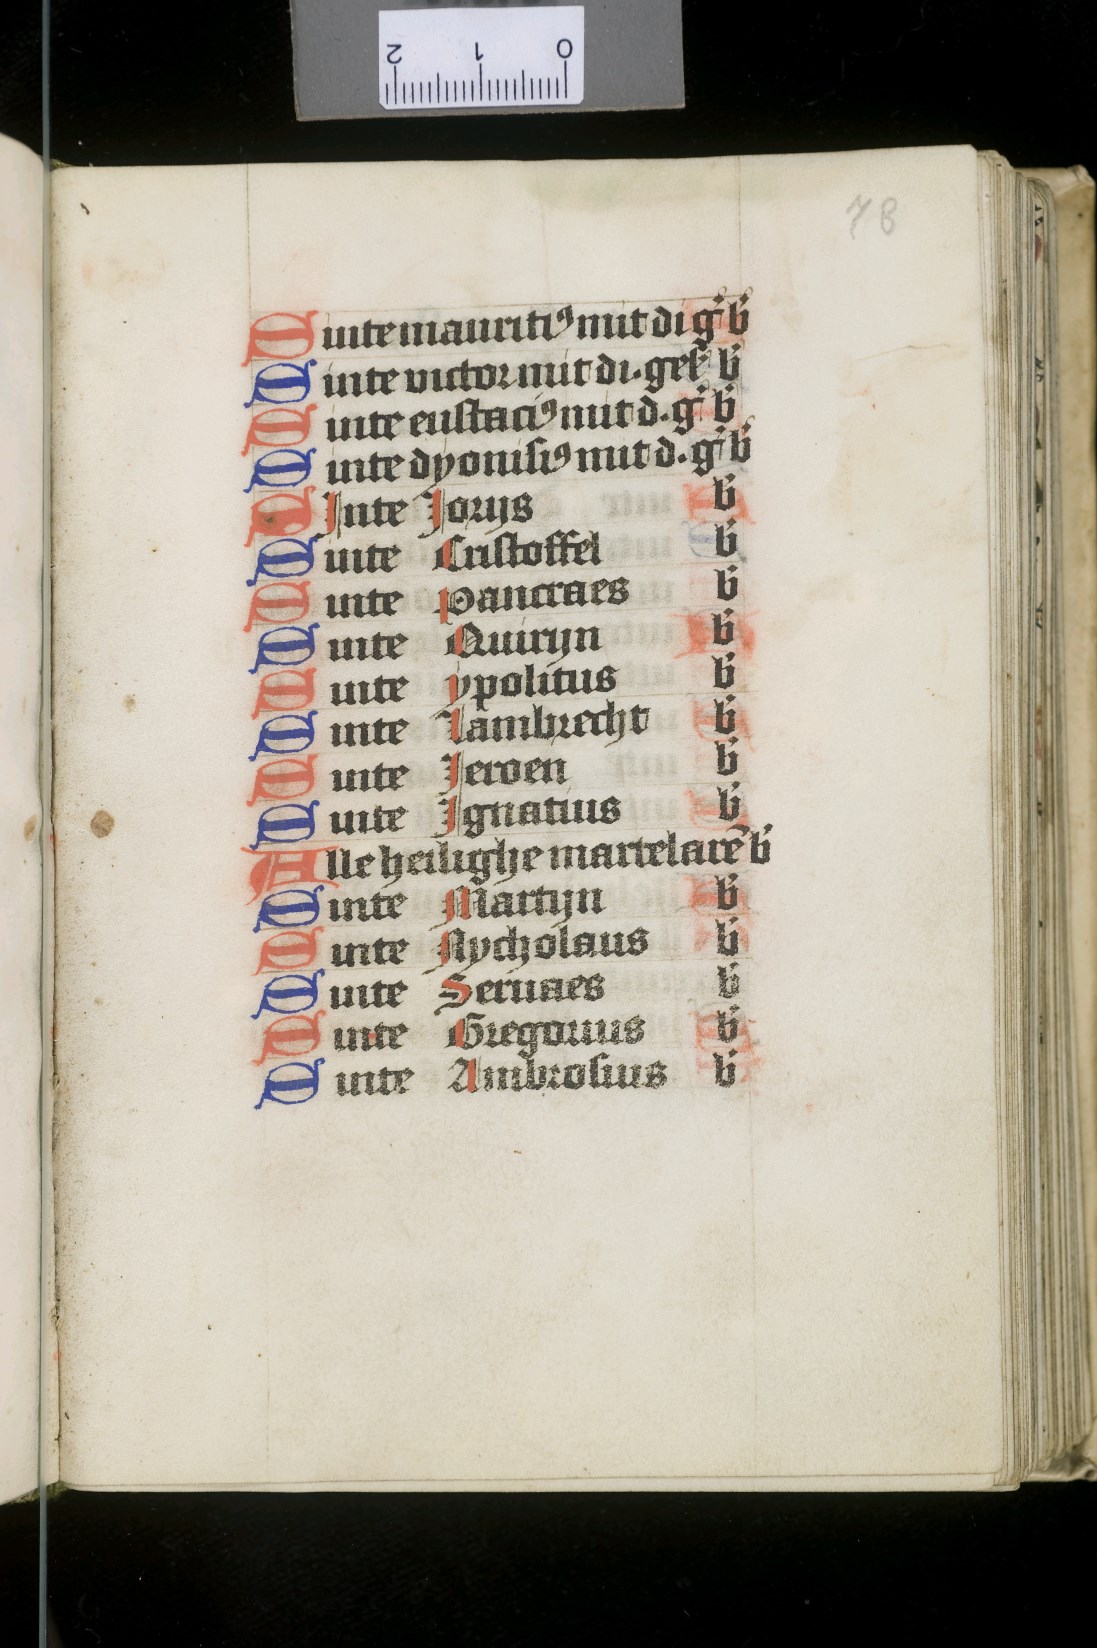 78
Sinte mauritiꝰ mit di gꝰ b
Sinte victor mit di. geſ b
Sinte eustaciꝰ mit d. gꝰ b
Sinte dyonisiꝰ mit d. gꝰ b
Sinte Jorijs b
Sinte Cristoffel b
Sinte pancraes b
Sinte Quirijn b
Sinte ypolitus b
Sinte Lambrecht b
Sinte Jeroen b
Sinte Ignatius b
Alle heilighe martelarē b
Sinte Martijn b
Sinte Nycholaus b
Sinte Seruaes b
Sinte Gregorius b
Sinte Ambrosius b
2 1 0